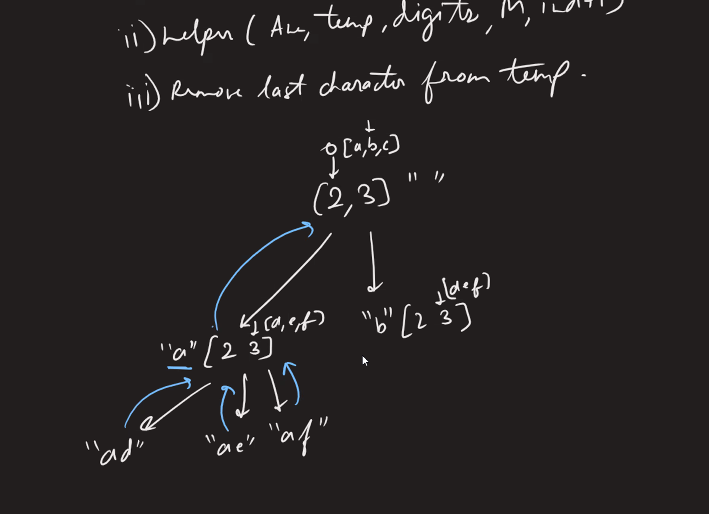 ii) Helper ( Ans, temp, digits, M, ind+1)
iii) Remove last character from temp.
0 [a,b,c]
[2,3] " "
[d e f]
[d,e,f]
"b" [2 3]
"a" [2 3]
"ad" "ae" "af"